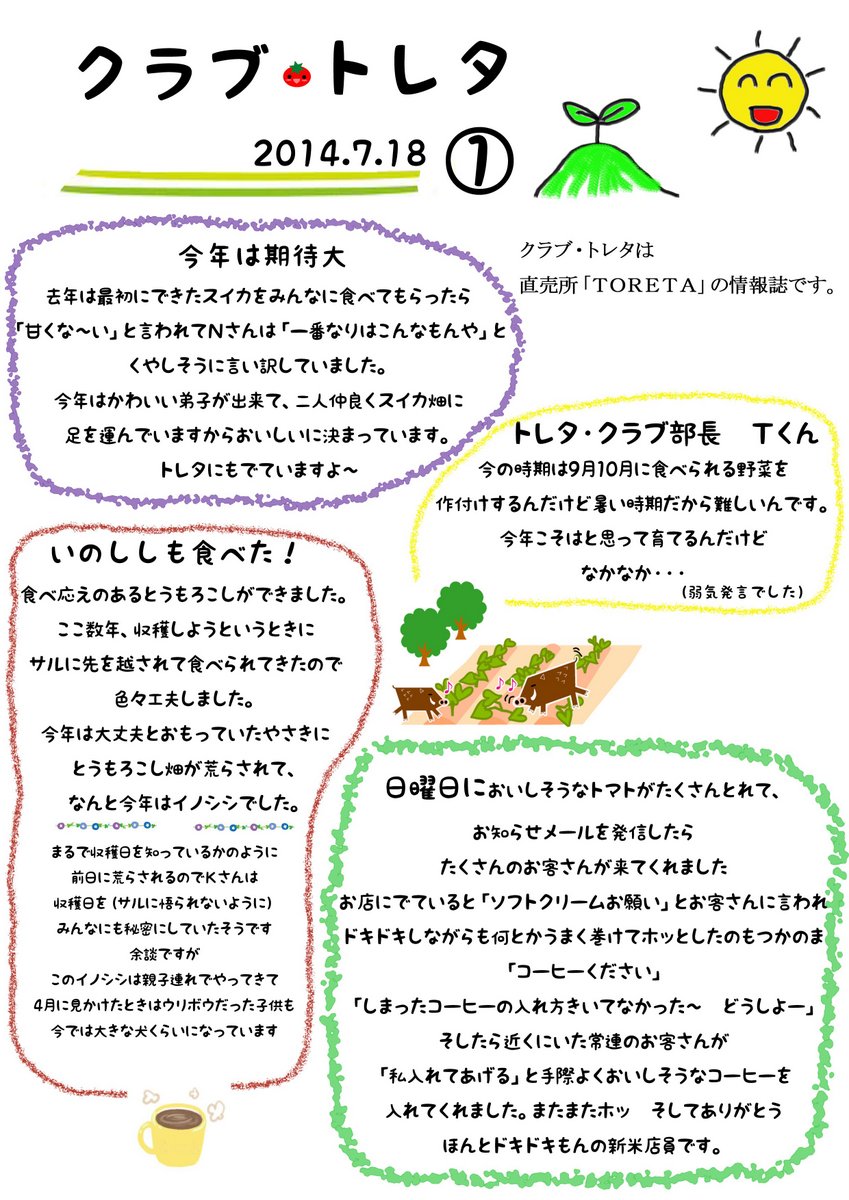 クラブ・トレタ
2014.7.18 ①
クラブ・トレタは
直売所「TORETA」の情報誌です。
今年は期待大
去年は最初にできたスイカをみんなに食べてもらったら
「甘くな～い」と言われてNさんは「一番なりはこんなもんや」と
くやしそうに言い訳していました。
今年はかわいい弟子が出来て、二人仲良くスイカ畑に
足を運んでいますからおいしいに決まっています。
トレタにもでていますよ～
トレタ・クラブ部長　Tくん
今の時期は9月10月に食べられる野菜を
作付けするんだけど暑い時期だから難しいんです。
今年こそはと思って育てるんだけど
なかなか・・・
(弱気発言でした)
いのししも食べた！
食べ応えのあるとうもろこしができました。
ここ数年、収穫しようというときに
サルに先を越されて食べられてきたので
色々工夫しました。
今年は大丈夫とおもっていたやさきに
とうもろこし畑が荒らされて、
なんと今年はイノシシでした。
まるで収穫日を知っているかのように
前日に荒らされるのでKさんは
収穫日を(サルに悟られないように)
みんなにも秘密にしていたそうです
余談ですが
このイノシシは親子連れでやってきて
4月に見かけたときはウリボウだった子供も
今では大きな犬くらいになっています
日曜日においしそうなトマトがたくさんとれて、
お知らせメールを発信したら
たくさんのお客さんが来てくれました
お店にでていると「ソフトクリームお願い」とお客さんに言われ
ドキドキしながらも何とかうまく巻けてホッとしたのもつかのま
「コーヒーください」
「しまったコーヒーの入れ方きいてなかった～　どうしよー」
そしたら近くにいた常連のお客さんが
「私入れてあげる」と手際よくおいしそうなコーヒーを
入れてくれました。またまたホッ　そしてありがとう
ほんとドキドキもんの新米店員です。